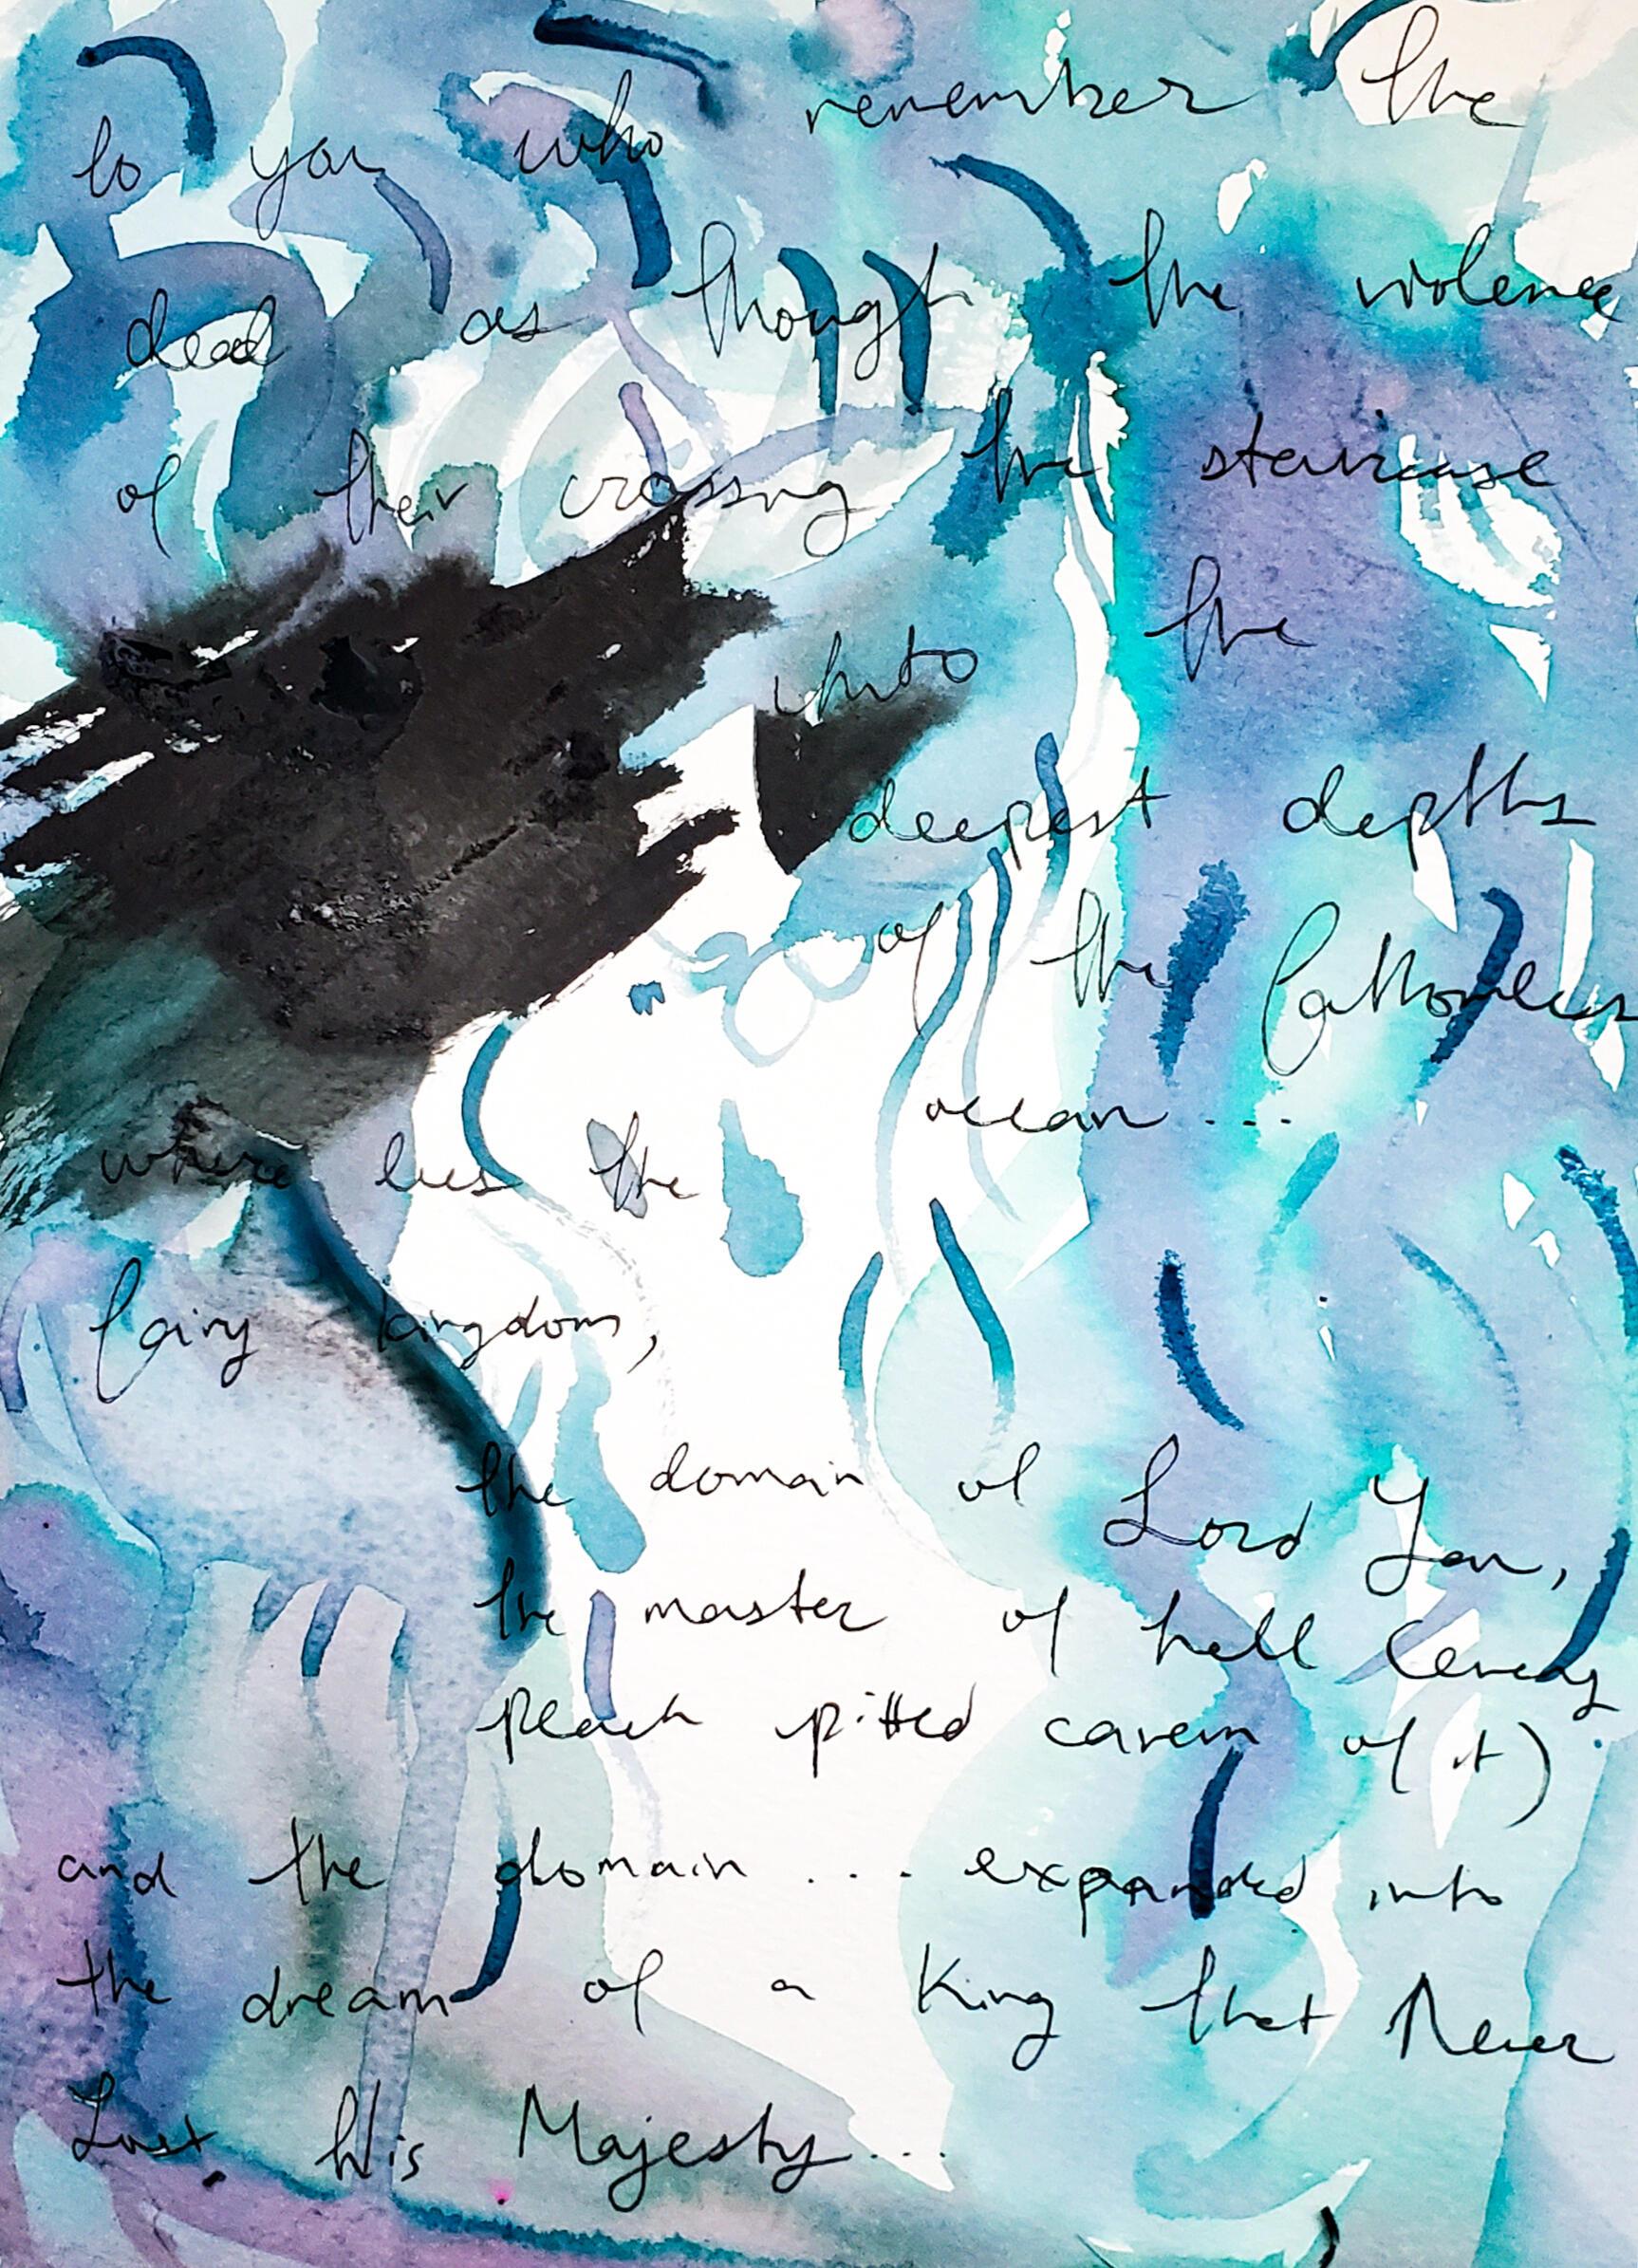 to you who remember the
dead as though the violence
of their crossing the staircase
into the
deepest depths
of the fathomless
ocean ...
where lies the
fairy kingdom,
the domain of Lord Yan,
the master of hell (every
peach pitted cavern of it)
and the domain ... expanded into
the dream of a King that Never
Lost His Majesty...